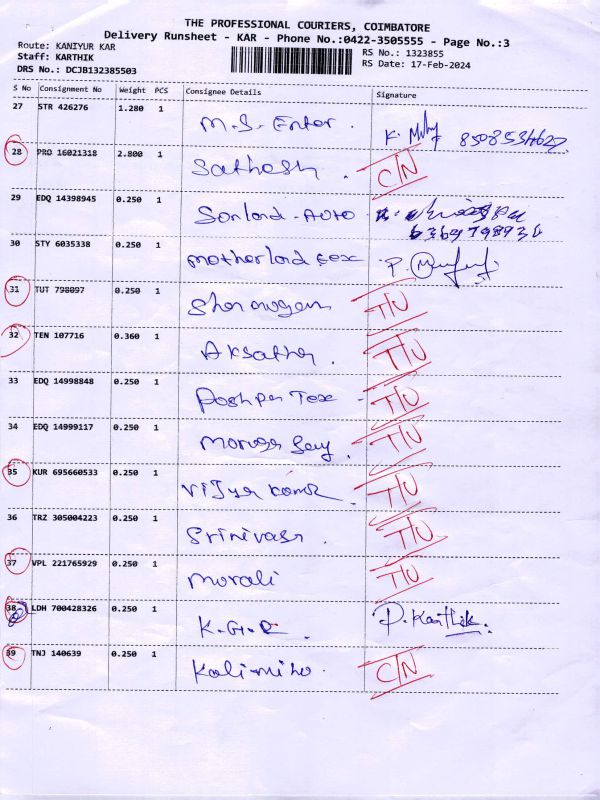 THE PROFESSIONAL COURIERS, COIMBATORE
Delivery Runsheet - KAR - Phone No.:0422-3505555 - Page No.:3
Route: KANIYUR KAR
Staff: KARTHIK
DRS No.: DCJB132385503
RS No.: 1323855
RS Date: 17-Feb-2024
S No Consignment No Weight PCS Consignee Details Signature
27 STR 426276 1.280 1 M.S. Enter. K. 8508534627.
28 PRO 16021318 2.800 1 Sathesh. C/N
29 EDQ 14398945 0.250 1 Sonlord - Auto
6369798934
30 STY 6035338 0.250 1 Motherlord P.
31 TUT 798097 0.250 1 T/U
32 TEN 107716 0.360 1 T/U
33 EDQ 14998848 0.250 1 Tex - T/U
34 EDQ 14999117 0.250 1 T/U
35 KUR 695660533 0.250 1 T/U
36 TRZ 305004223 0.250 1 Srinivasn. T/U
37 VPL 221765929 0.250 1 Morali T/U
38 LDH 700428326 0.250 1 K.G.R. P. Karthik.
39 TNJ 140639 0.250 1 C/N